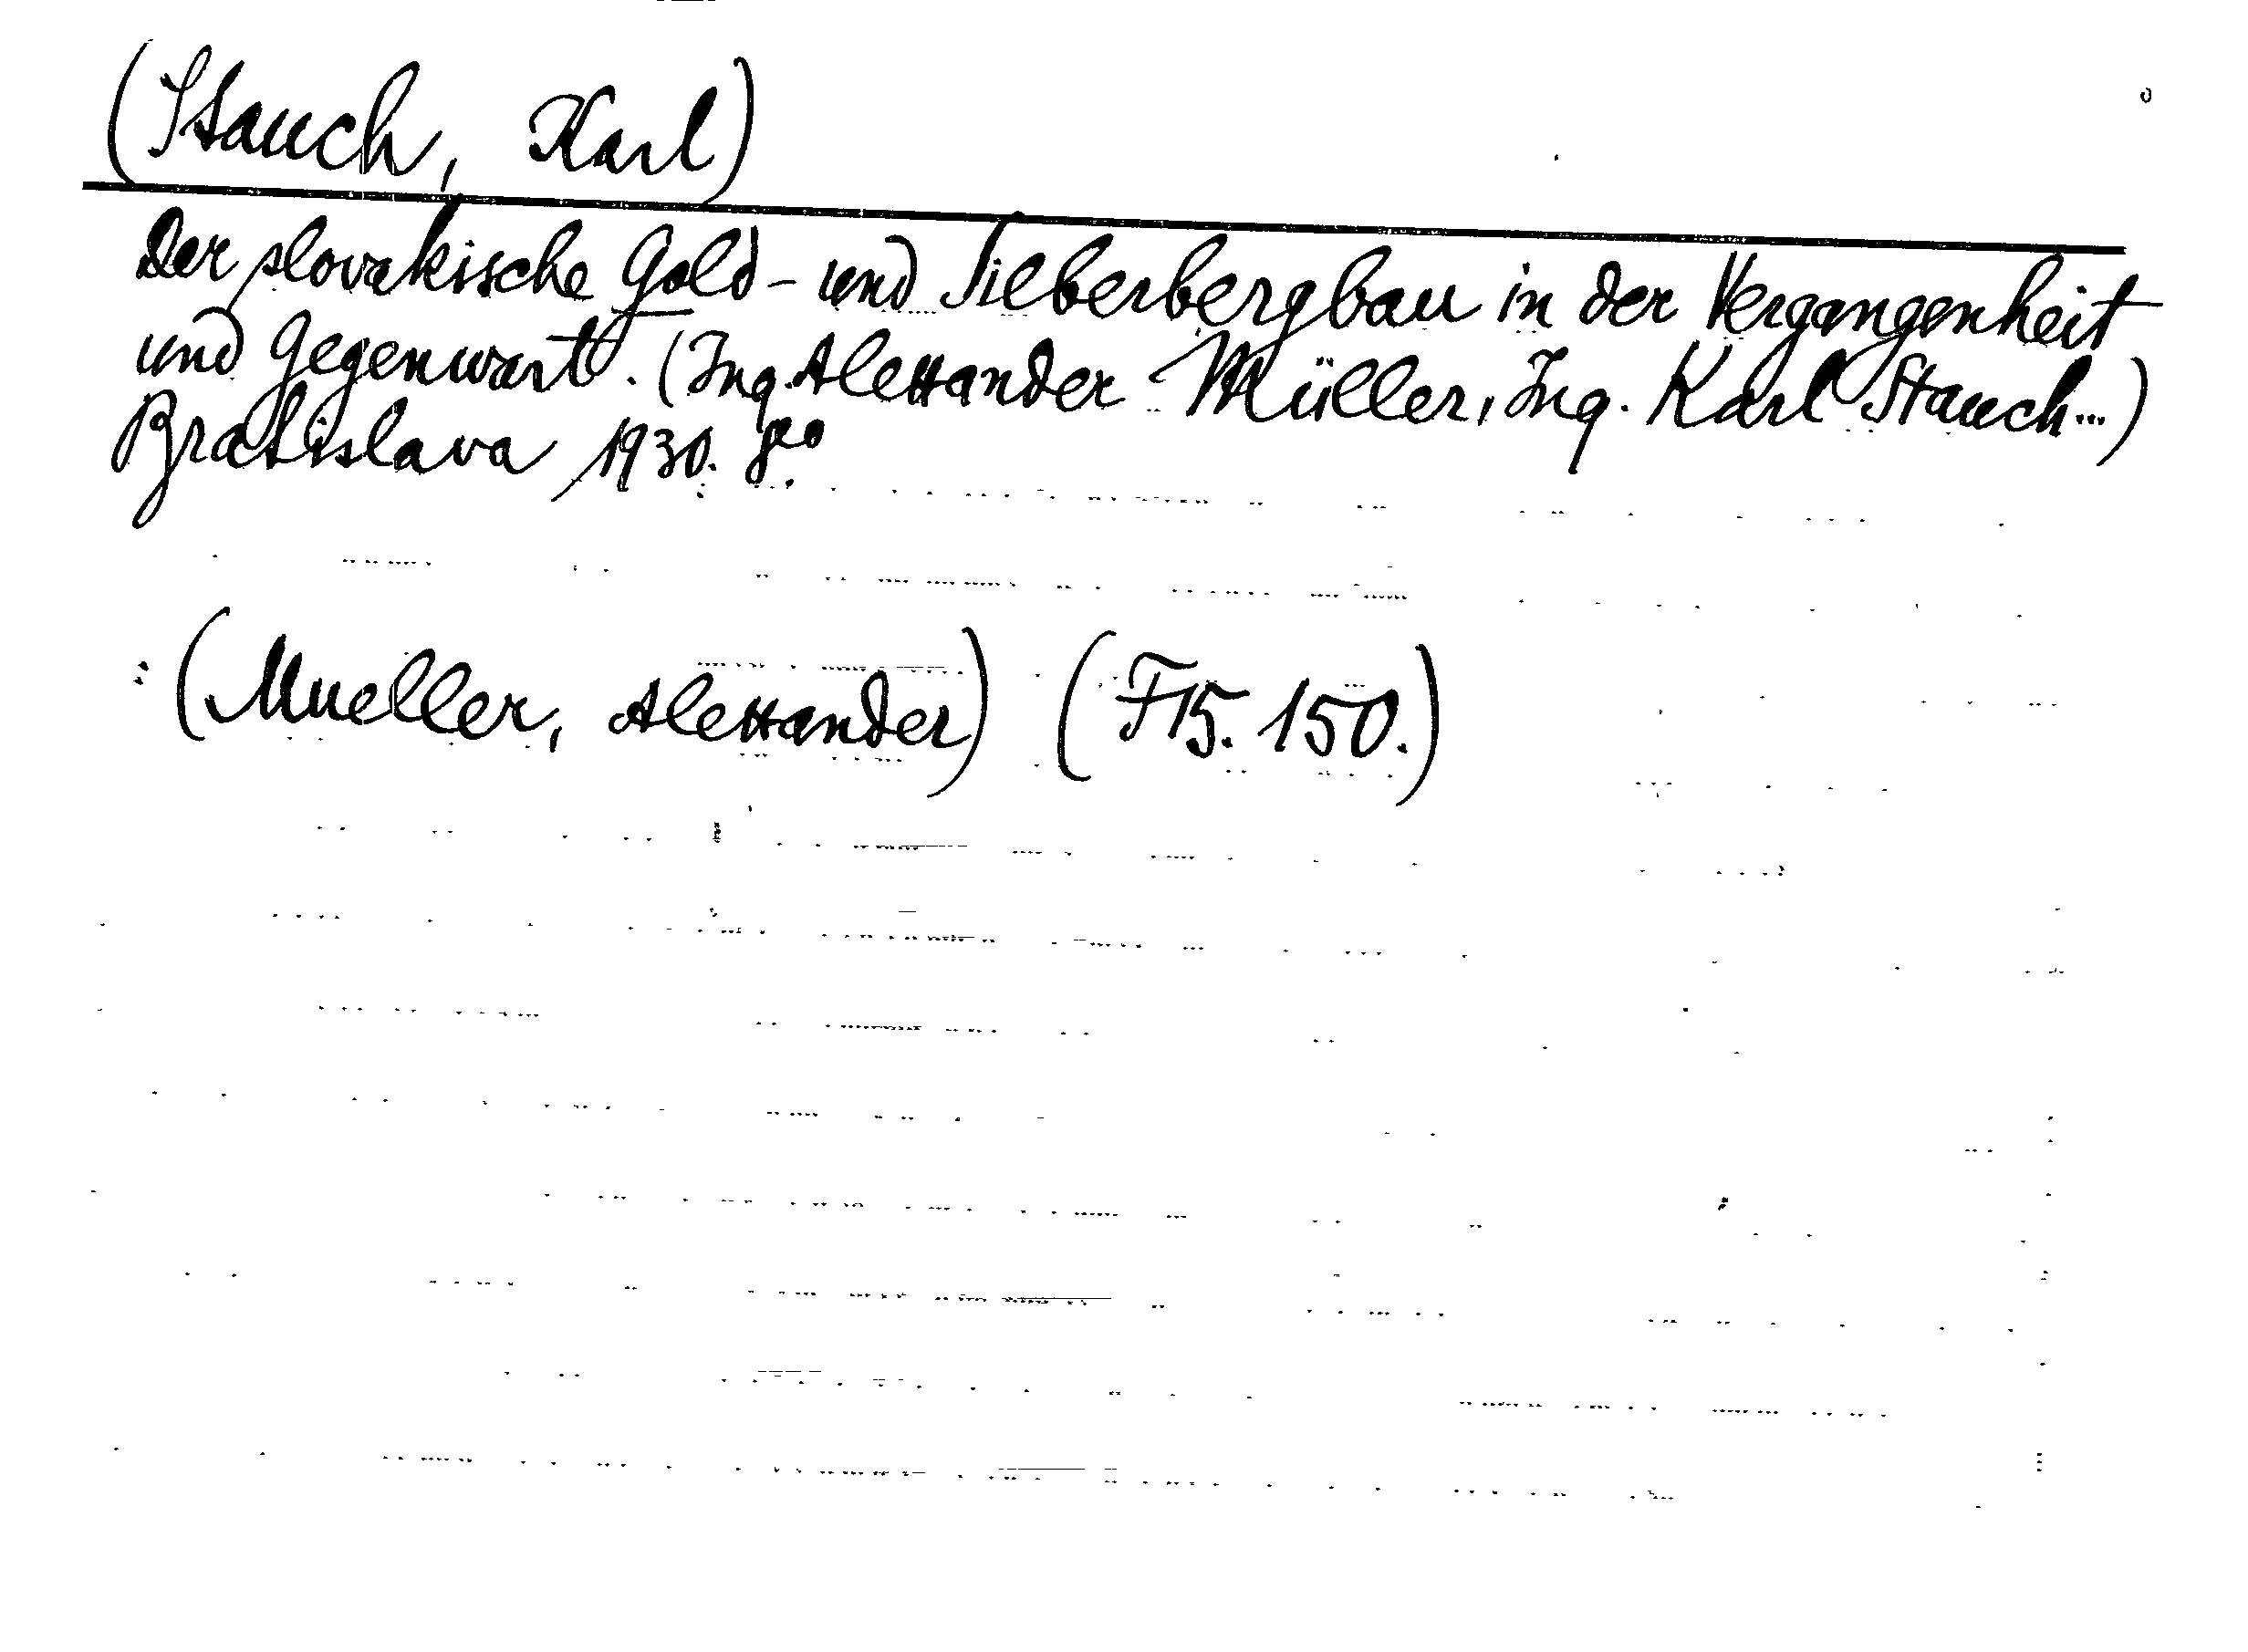 (Stauch, Karl)
Der slovakische Gold- und Silberbergbau in der Vergangenheit
und Gegenwart. (Ing. Alexander Müller, Ing. Karl Stauch...)
Bratislava 1930. 8º.
(Mueller, Alexander) (F15. 150.)